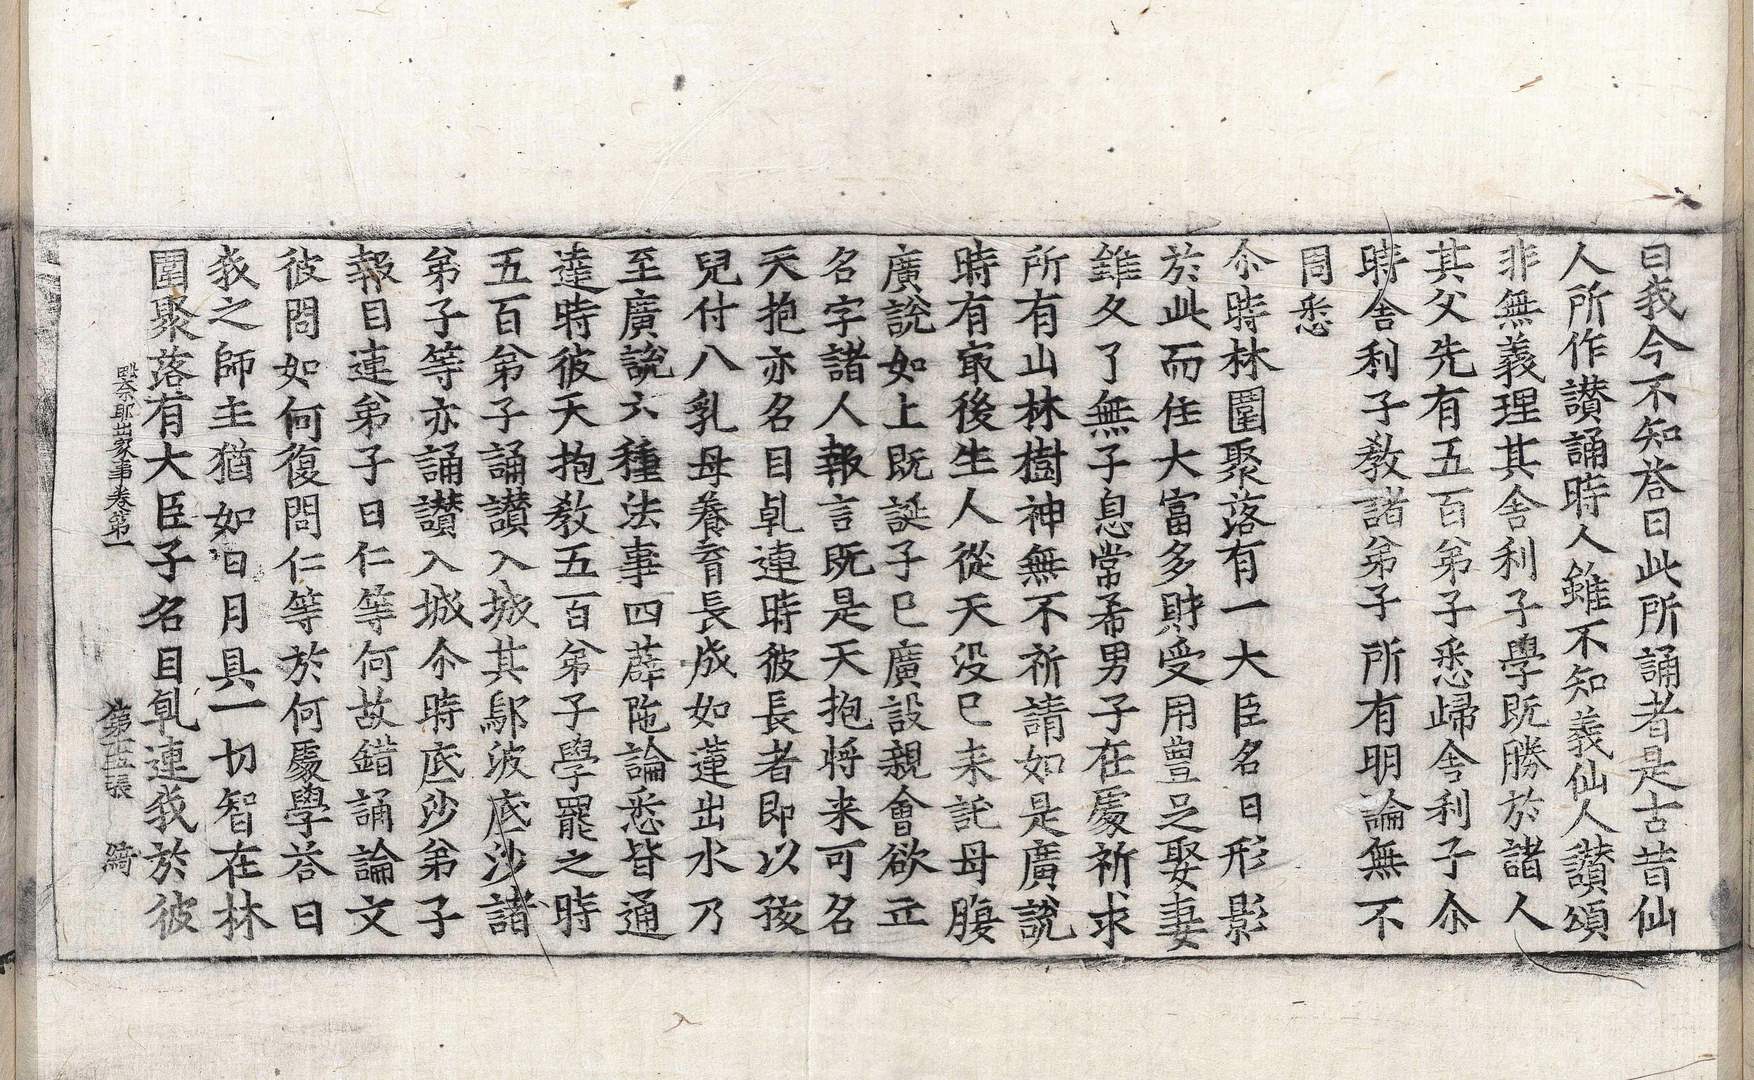 曰我今不知荅曰此所誦者是古昔仙
人所作讃誦時人雖不知義仙人讃頌
非無義理其舎利子學既勝於諸人
其父先有五百弟子悉歸舎利子尒
時舎利子教諸弟子所有明論無不
周悉
尒時林圍聚落有一大臣名曰形影
於此而住大富多財受用豊足娶妻
雖久了無子息常希男子在處祈求
所有山林樹神無不祈請如是廣說
時有㝡後生人從天没已来託母腹
廣說如上既誕子已廣設親會欲立
名字諸人報言既是天抱将来可名
天抱亦名目乹連時彼長者即以孩
兒付八乳母養育長成如蓮出水乃
至廣說六種法事四薜陁論悉皆通
達時彼天抱教五百弟子學罷之時
五百弟子誦讃入城其鄔波底沙諸
弟子等亦誦讃入城尒時底沙弟子
報目連弟子曰仁等何故錯誦論文
彼問如何復問仁等於何處學荅曰
我之師主猶如日月具一切智在林
圍聚落有大臣子名目乹連我於彼
毗奈耶出家事卷第一 第五張 綺